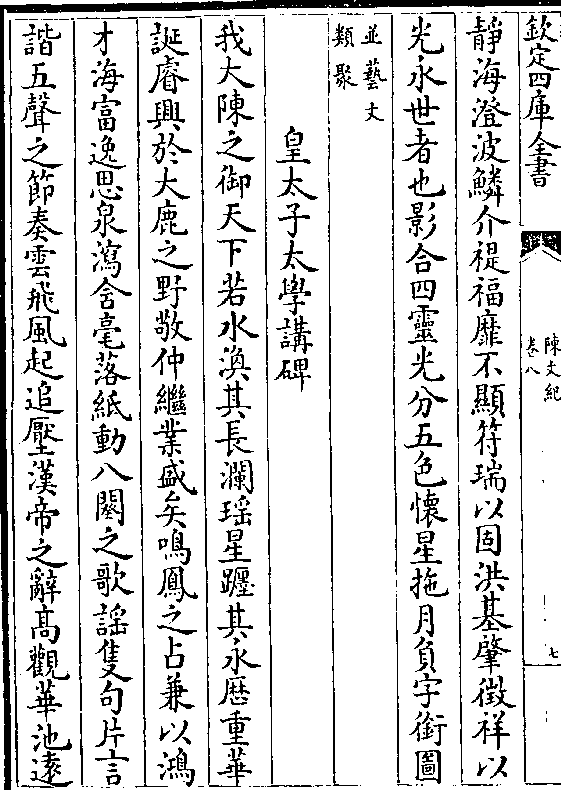 欽定四庫全書
陳文紀
卷八
七
靜海澄波鱗介禔福靡不顯符瑞以固洪基肇徵祥以
光永世者也影合四靈光分五色懷星抱月負字銜圖
並藝文
類聚
皇太子太學講碑
我大陳之御天下若水渙其長瀾瑶星躔其永歷重華
誕睿興於大鹿之野敬仲繼業盛矣鳴鳳之占兼以鴻
才海富逸思泉瀉含毫落紙動八闋之歌謡隻句片言
諧五聲之節奏雲飛風起追壓漢帝之辭高觀華池遠